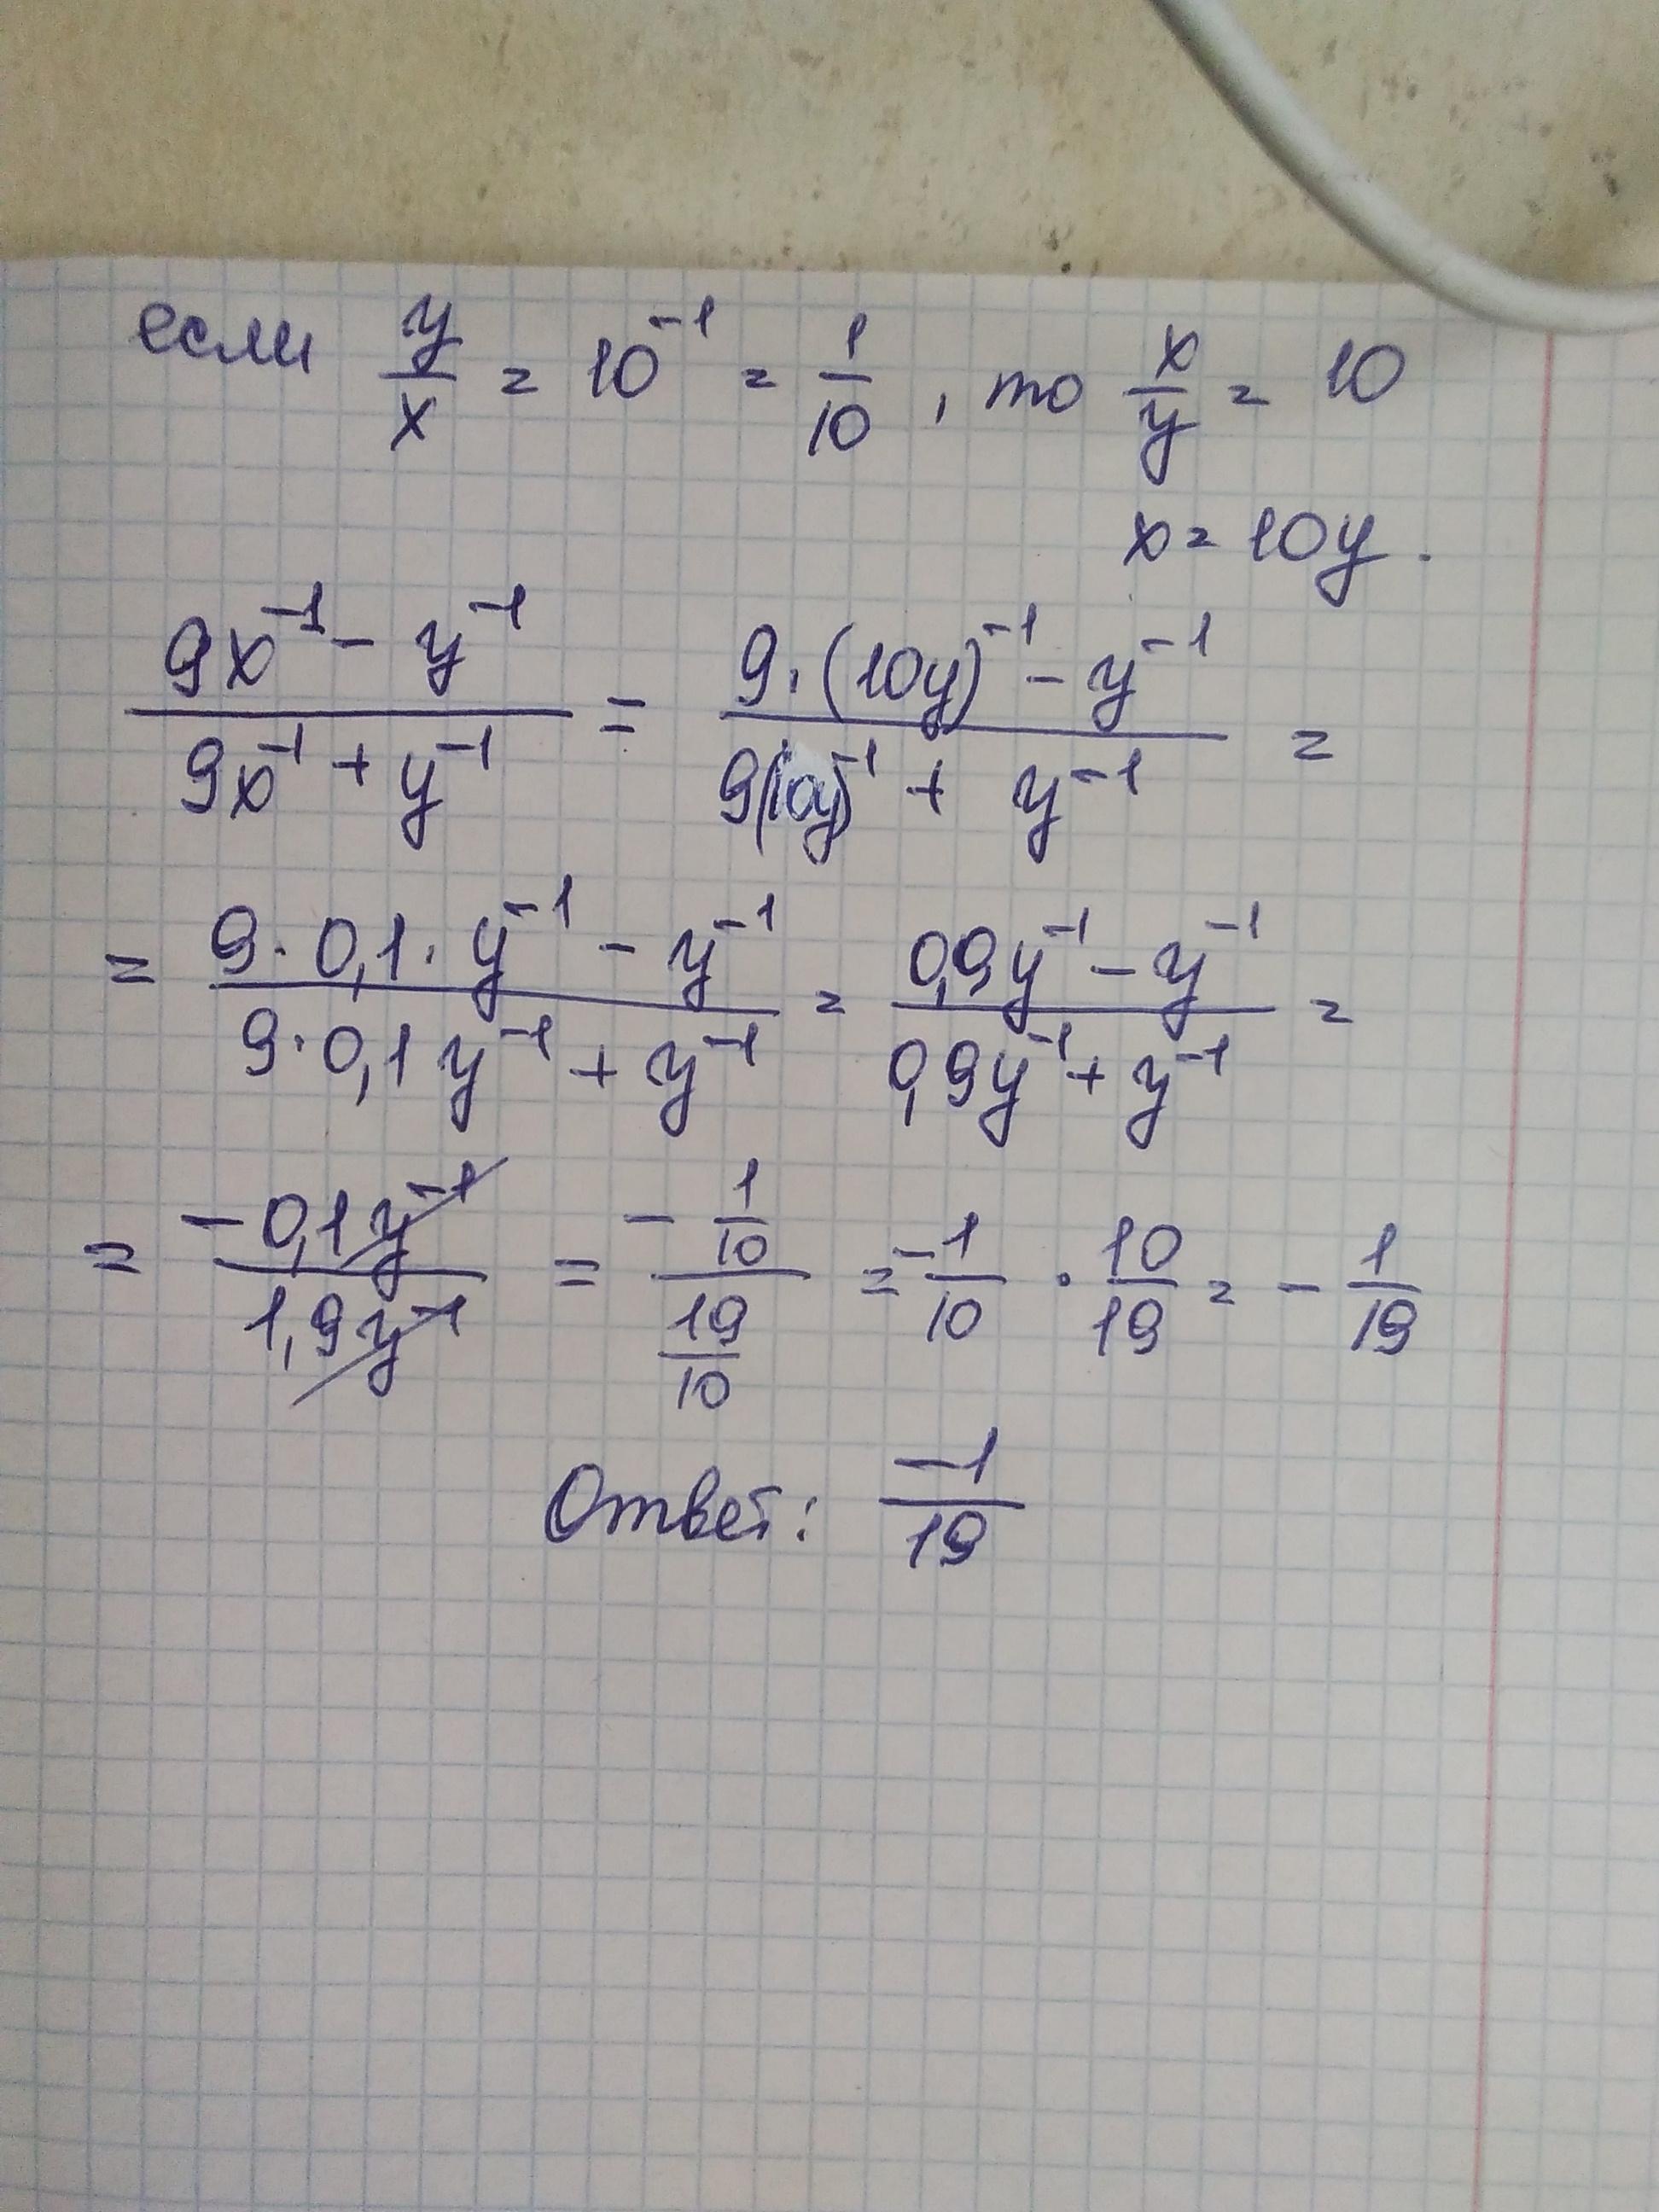 если y/x = 10⁻¹ = 1/10, то x/y = 10
x = 10y.
(9x⁻¹ - y⁻¹)/(9x⁻¹ + y⁻¹) = (9·(10y)⁻¹ - y⁻¹)/(9(10y)⁻¹ + y⁻¹) =
= (9·0,1·y⁻¹ - y⁻¹)/(9·0,1y⁻¹ + y⁻¹) = (0,9y⁻¹ - y⁻¹)/(0,9y⁻¹ + y⁻¹) =
= (-0,1y⁻¹)/(1,9y⁻¹) = (-1/10)/(19/10) = -1/10 · 10/19 = -1/19
Ответ: -1/19